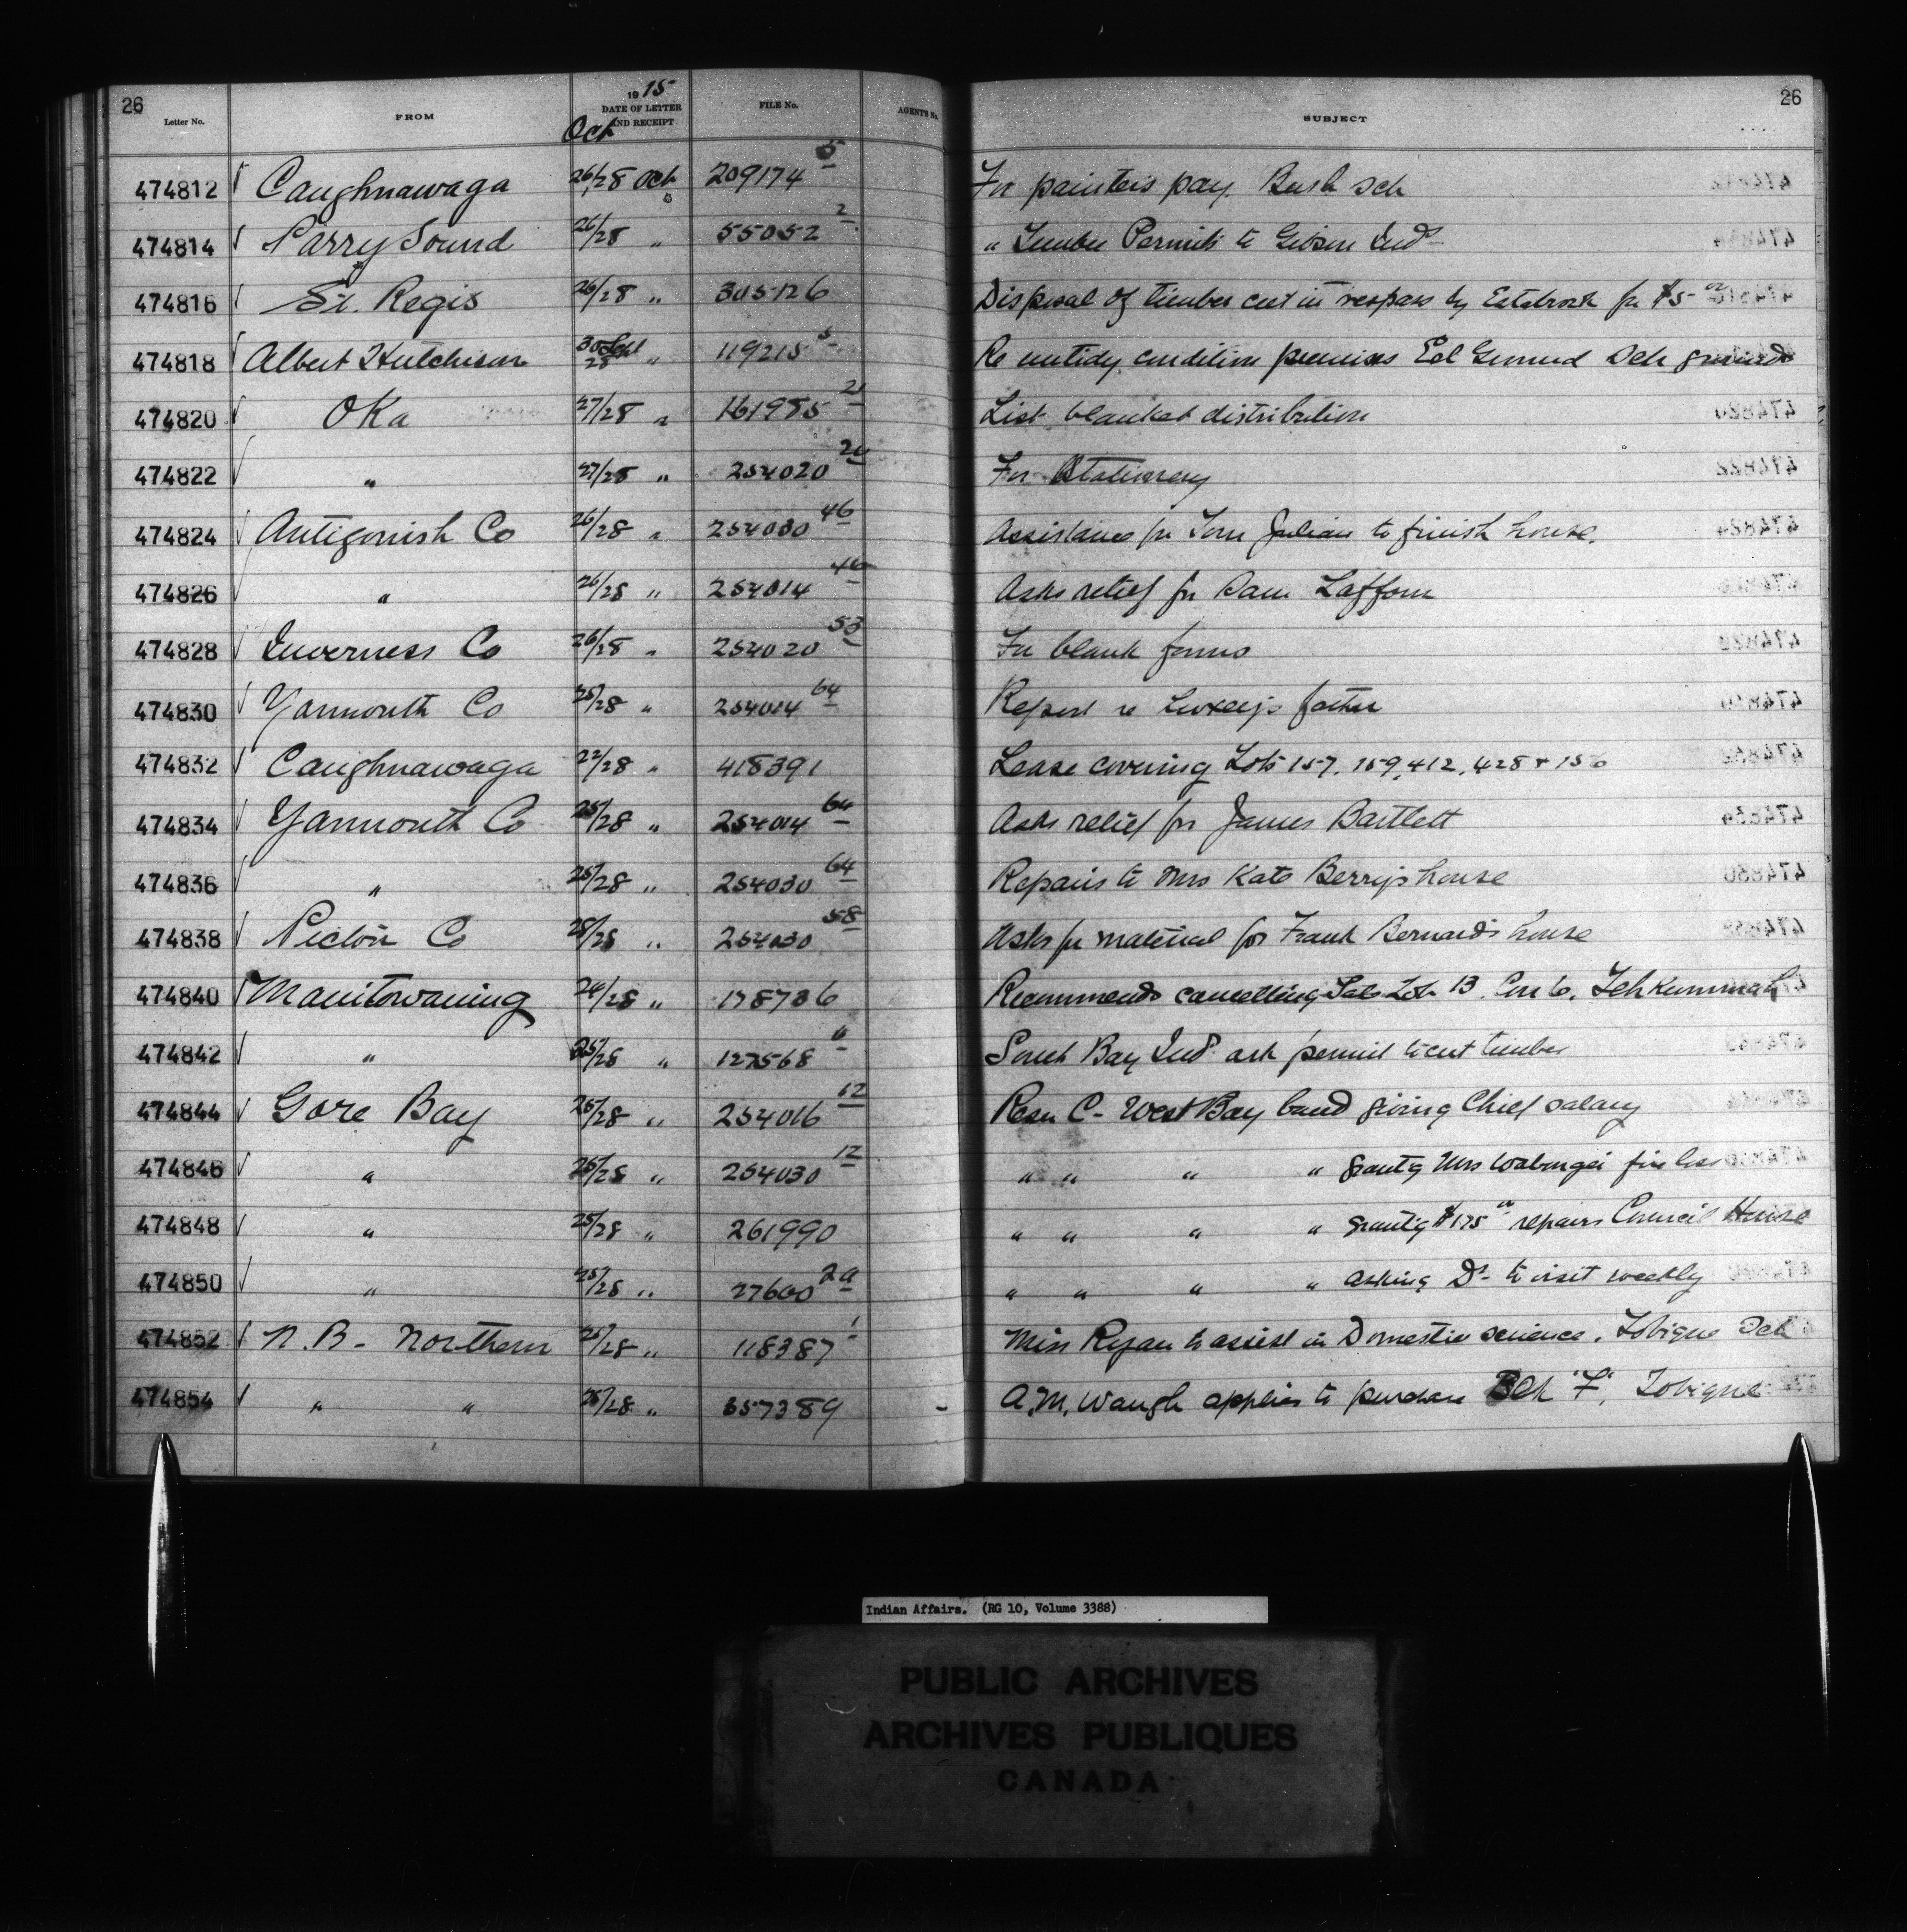 26 Letter No. FROM 1915 DATE OF LETTER AND RECEIPT Oct FILE No. AGENT'S No. SUBJECT 26
474812 √ Caughnawaga 26/28 Oct 209174 5 For painters pay. Bush Sch
474814 √ Parry Sound 26/28 " 55052 2 " Timber Permits to Gibson Inds
474816 √ St. Regis 26/28 " 305126 Disposal of timber cut in trespass by Estabrook for $5-00
474818 √ Albert Hutchison 30 Sept/28 " 119215 5 Re untidy condition premises Eel Ground Sch grounds
474820 √ Oka 27/28 " 161985 21 List blanket distribution
474822 √ " 27/28 " 254020 For Stationery
474824 √ Antigonish Co 26/28 " 254030 46 Assistance for Tom Julian to finish house.
474826 √ " 26/28 " 254014 46 Asks relief for Sam Laffom
474828 √ Inverness Co 26/28 " 254020 53 For blank forms
474830 √ Yarmouth Co 25/28 " 254014 64 Report re father
474832 √ Caughnawaga 22/28 " 418391 Lease covering Lots 157, 159, 412, 428 + 156
474834 √ Yarmouth Co 25/28 " 254014 64 Asks relief for James Bartlett
474836 √ " 25/28 " 254030 64 Repairs to Mrs Kate Berry's house
474838 √ Pictou Co 254030 58 Asks for material for Frank Bernard's house
474840 √ Manitowaning 178736 Recommends cancelling Sale Lot 13 Con 6, Tehkummah
474842 √ " 25/28 " 127568 South Bay Inds ask permit to cut timber
474844 √ Gore Bay 25/28 " 254016 12 Resn C- West Bay band giving Chief salary
474846 √ " 25/28 " 254030 12 " " " " grantg Mrs fire loss
474848 √ " 25/28 " 261990 " " " " grantg $175 00 repairs Council House
474850 √ " 25/28 " 27600 2a " " " " asking Dr- to visit weekly
474852 √ N.B- Northern 118387 1 Miss Ryan to assist in Domestic science, Tobique Sch
474854 √ " " " 357389 - A.M. Waugh applies to purchase Blk "F", Tobique
Indian Affairs. (RG 10, Volume 3388)
PUBLIC ARCHIVES
ARCHIVES PUBLIQUES
CANADA